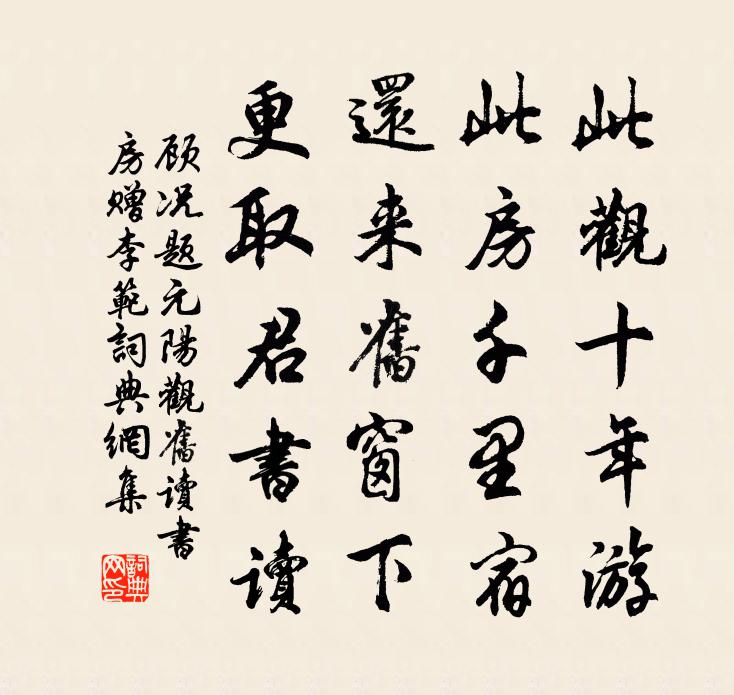 此觀十年游
此房千里宿
還来舊窗下
更取君書讀
顾况题元陽觀舊讀書
房赠李範詞典網集
詞典网印